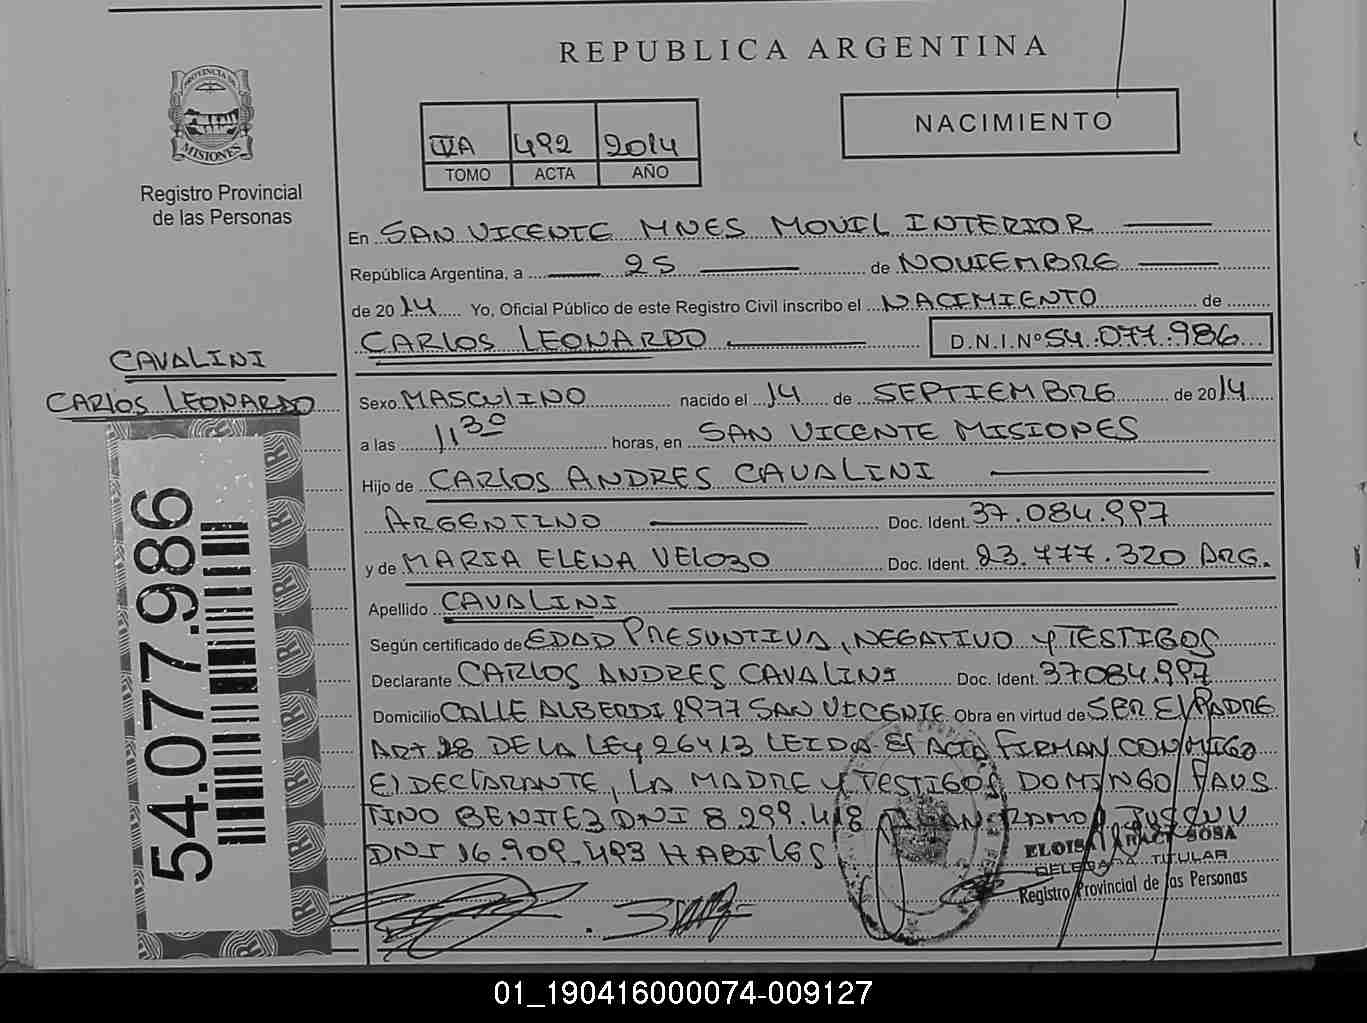 REPUBLICA ARGENTINA
PROVINCIA DE
MISIONES
Registro Provincial
de las Personas
IVA 492 2014
TOMO ACTA AÑO
NACIMIENTO
En SAN VICENTE MNES MOVIL INTERIOR
República Argentina, a 25 de NOVIEMBRE
de 2014 Yo, Oficial Público de este Registro Civil inscribo el NACIMIENTO de
CARLOS LEONARDO D.N.I.Nº 54.077.986
CAVALINI
CARLOS LEONARDO
Sexo MASCULINO nacido el 14 de SEPTIEMBRE de 2014
a las 11 30 horas, en SAN VICENTE MISIONES
Hijo de CARLOS ANDRES CAVALINI
ARGENTINO Doc. Ident. 37.084.997
y de MARIA ELENA VELOZO Doc. Ident. 23.777.320 ARG.
Apellido CAVALINI
Según certificado de EDAD PRESUNTIVA, NEGATIVO Y TESTIGOS
Declarante CARLOS ANDRES CAVALINI Doc. Ident. 37.084.997
Domicilio CALLE ALBERDI 2977 SAN VICENTE Obra en virtud de SER El PADRE
ART 28 DE LA LEY 26413 LEIDA El ACTA FIRMAN CONMIGO
El DECLARANTE, LA MADRE Y TESTIGOS DOMINGO FAUS
TINO BENITEZ DNI 8.299.418
DNI 16.909.493 HABILES
54.077.986
ELOISA SOSA
DELEGADA TITULAR
Registro Provincial de las Personas
01_190416000074-009127